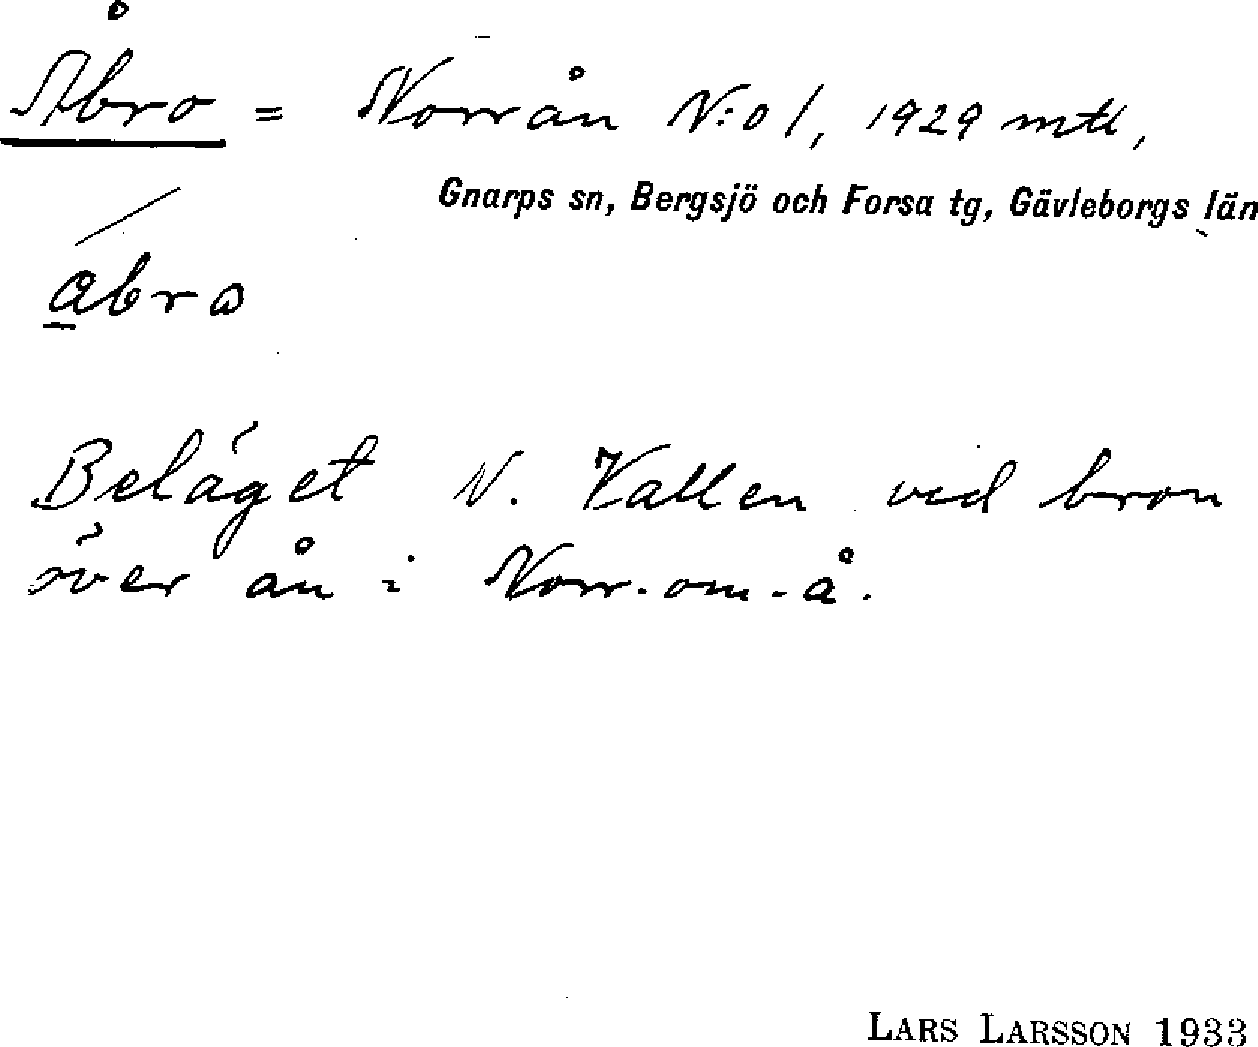 Åbro = Norrån N:o 1, 1929 mtl,
Gnarps sn, Bergsjö och Forsa tg, Gävleborgs län
åbro
Beläget N. Vallen vid bron
över ån i Norr-om-å.
LARS LARSSON 1933